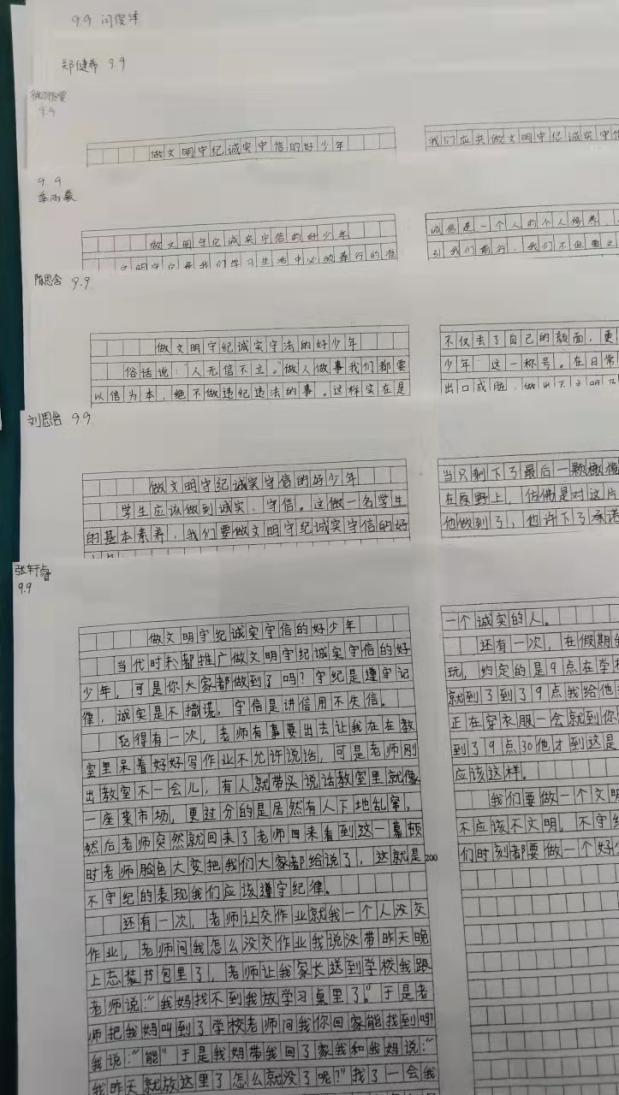 9.9 闫俊泽
郑健希 9.9
9.9
做文明守纪诚实守信的好少年
我们应共做文明守纪诚实守信
9.9
李雨蓁
做文明守纪诚实守信的好少年
文明守纪是我们学习生活中必须奉行的准
诚信是一个人的个人修养,
引我们前行。我们不但要
陈思含 9.9
做文明守纪诚实守法的好少年
俗话说:“人无信不立。”做人做事我们都要
以信为本,绝不做违纪违法的事。这样实在是
不仅丢了自己的颜面,更
少年 这一称号。在日常
出口成脏,做出不文明
刘思含 9.9
做文明守纪诚实守信的好少年
学生应该做到诚实、守信。这做一名学生
的基本素养,我们要做文明守纪诚实守信的好
当只剩下了最后一颗橄榄
在原野上,仿佛是对这片
他做到了,他许下了承诺
张轩睿
9.9
做文明守纪诚实守信的好少年
当代时刻都推广做文明守纪诚实守信的好
少年,可是你大家都做到了吗?守纪是遵守记
律,诚实是不撒谎,守信是讲信用不失信。
记得有一次,老师有事要出去让我在在教
室里呆着好好写作业不允许说话,可是老师刚
出教室不一会儿,有人就带头说话教室里就像
一座菜市场,更过分的是居然有人下地乱窜,
然后老师突然就回来了老师回来看到这一幕顿
时老师脸色大变把我们大家都给说了,这就是200
不守纪的表现我们应该遵守纪律。
还有一次,老师让交作业就我一个人没交
作业,老师问我怎么没交作业我说没带昨天晚
上忘装书包里了,老师让我家长送到学校我跟
老师说:“我妈找不到我放学习桌里了。”于是老
师把我妈叫到了学校老师问我你回家能找到吗?
我说:“能”于是我妈带我回了家我和我妈说:“
我昨天就放这里了怎么就没了呢?”找了一会我
一个诚实的人。
还有一次,在假期
玩,约定的是9点在学校
就到了到了9点我给他
正在穿衣服一会就到你
到了9点30他才到这是
应该这样。
我们要做一个文明
不应该不文明,不守
们时刻都要做一个好